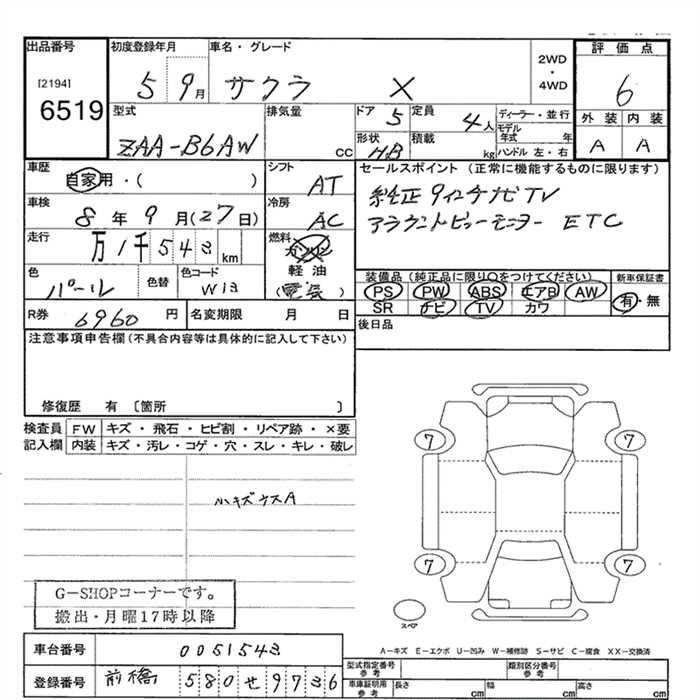 出品番号 初度登録年月 車名・グレード 2WD・4WD 評価点
[2194] 5 9月 サクラ X 6
6519
型式 排気量 ドア 5 定員 4人 ディーラー・並行 外装 内装
ZAA-B6AW CC 形状 HB 積載 kg モデル年式 年 A A
ハンドル 左・右
車歴 シフト セールスポイント(正常に機能するものに限ります)
自家用・( ) AT 純正9インチナビTV
車検 8年9月(27日) 冷房 AC アラウンドビューモニター ETC
走行 万1千543km 燃料 ガソリン
軽油
(電気)
色 パール 色替 色コード W13
装備品(純正品に限り○をつけてください) 新車保証書
PS PW ABS エアB AW 有・無
SR ナビ TV カワ
R券 6960円 名変期限 月 日 後日品
注意事項申告欄(不具合内容等は具体的に記入して下さい)
修復歴 有 〔箇所 〕
検査員 FW キズ・飛石・ヒビ割・リペア跡・×要
記入欄 内装 キズ・汚レ・コゲ・穴・スレ・キレ・破レ
7 7
小キズウスA
7 7
G-SHOPコーナーです。
搬出・月曜17時以降
スペア
A-キズ E-エクボ U-凹み W-補修跡 S-サビ C-腐食 XX-交換済
車台番号 0051543
登録番号 前橋 580 せ 9736
型式指定番号 参考 類別区分番号 参考
車庫証明用 参考 長さ cm 幅 cm 高さ cm